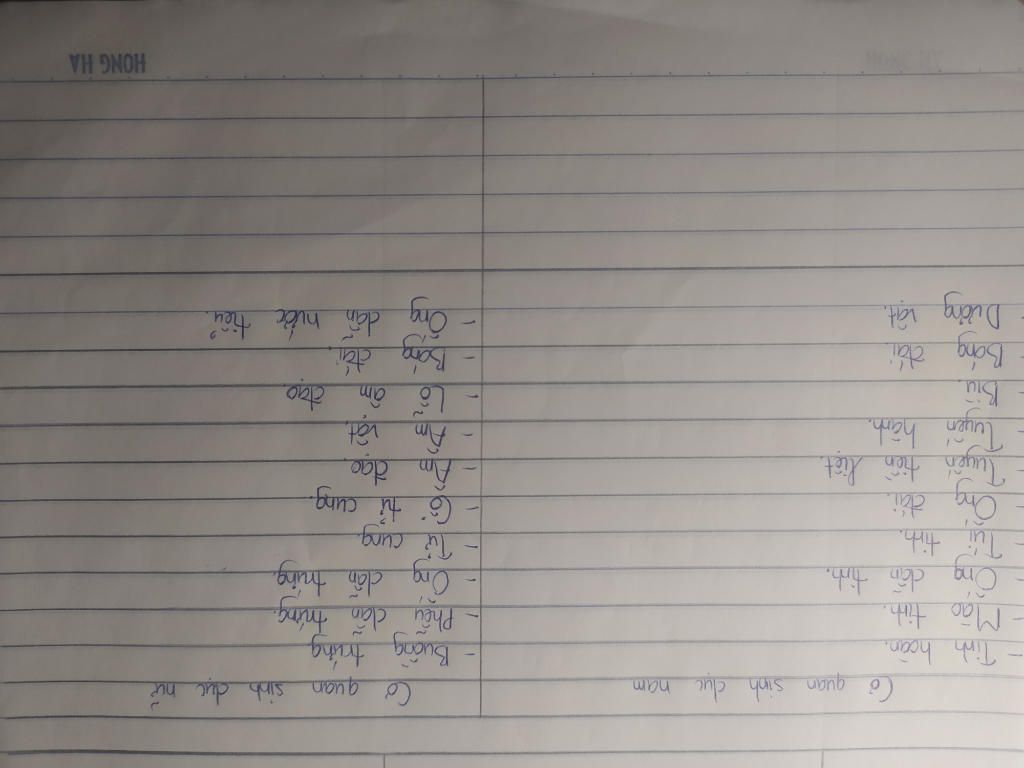 Cơ quan sinh dục nam
- Tinh hoàn.
- Mào tinh.
- Ống dẫn tinh.
- Túi tinh.
- Ống đái.
- Tuyến tiền liệt.
- Tuyến hành.
- Bìu.
- Bóng đái.
- Dương vật.
Cơ quan sinh dục nữ
- Buồng trứng
- Phễu dẫn trứng.
- Ống dẫn trứng.
- Tử cung.
- Cổ tử cung.
- Âm đạo.
- Âm vật.
- Lỗ âm đạo
- Bóng đái.
- Ống dẫn nước tiểu.
HONG HA